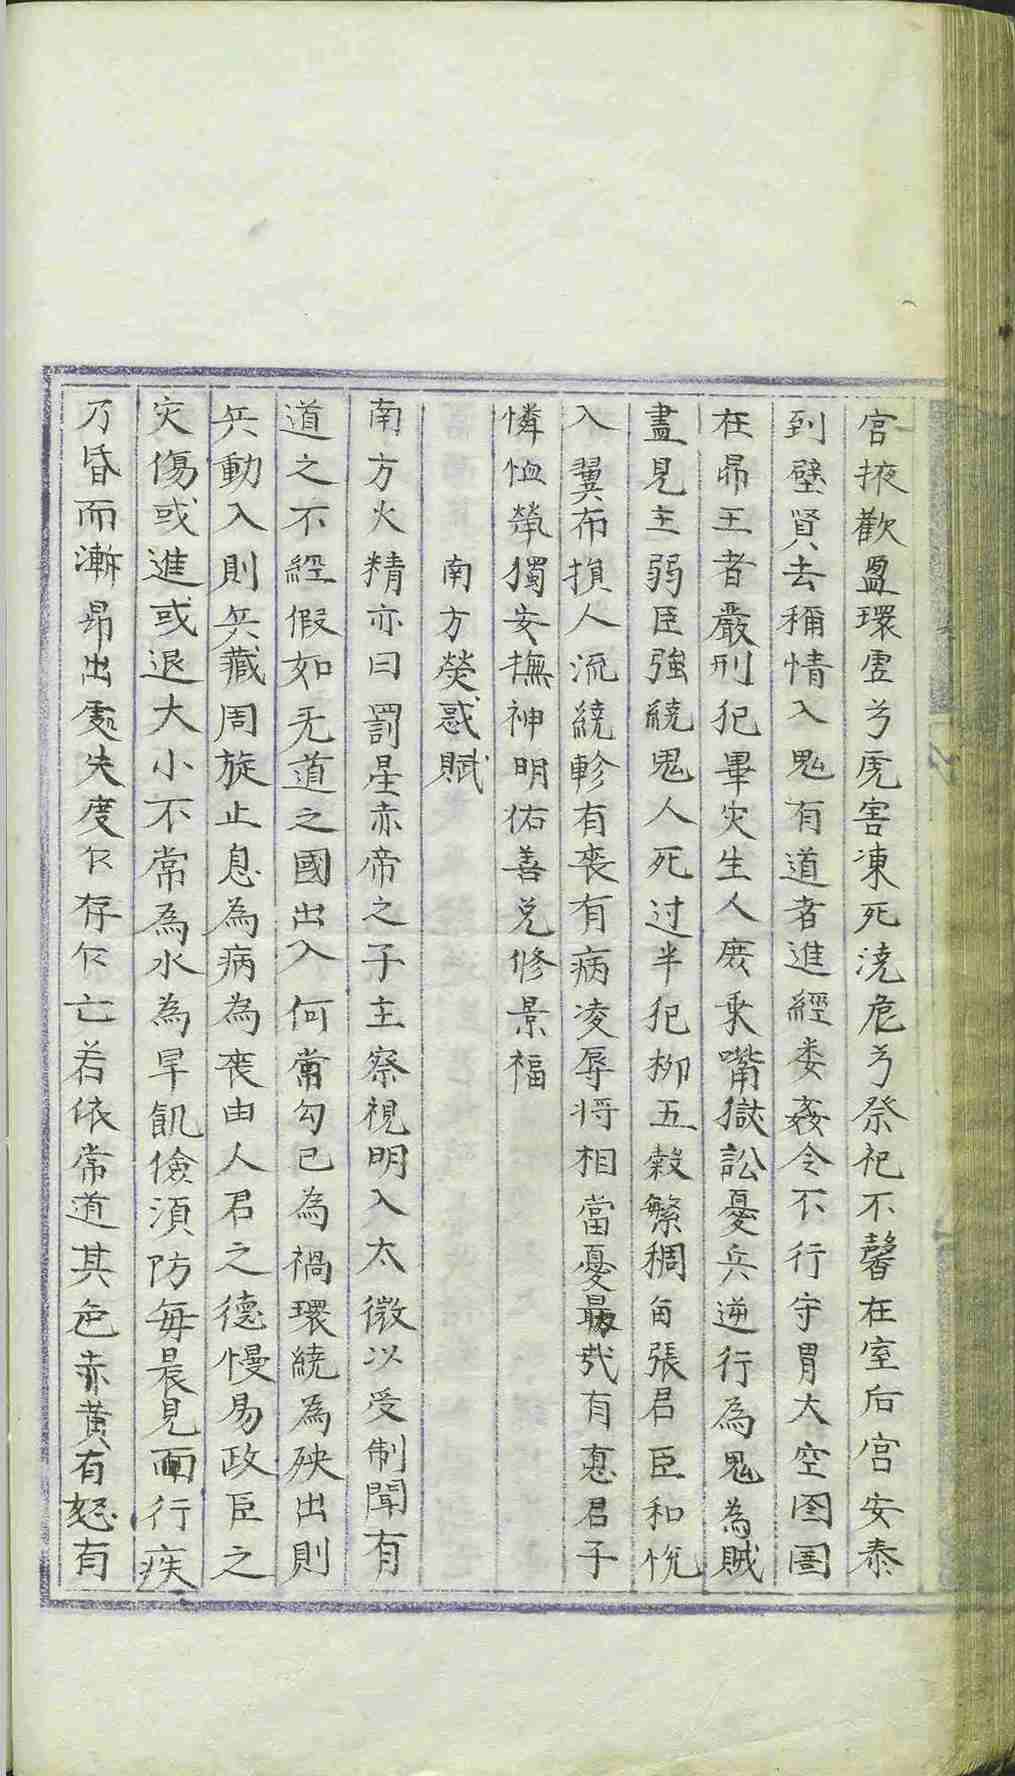 宮掖歡盈環虚兮虎害凍死澆危兮祭祀不馨在室后宮安泰
到壁賢去稱情入鬼有道者進經娄姦令不行守胃大空囹圄
在昴王者嚴刑犯畢灾生人庻乗嘴獄訟憂兵逆行為鬼為賊
盡見主弱臣強繞鬼人死过半犯柳五榖繁稠自張君臣和悅
入翼布損人流繞軫有喪有病凌辱将相當憂最哉有惪君子
憐恤㷀獨安撫神明佑善兌修景福
南方熒惑賦
南方火精亦曰罰星赤帝之子主察視明入太微以受制聞有
道之不經假如无道之國出入何常勾已為禍環繞為殃出則
兵動入則兵藏周旋止息為病為喪由人君之德慢易政臣之
灾傷或進或退大小不常為水為旱飢儉須防每晨見面行疾
乃昏而漸昴出處失度乍存乍亡若依常道其色赤黄有怒有